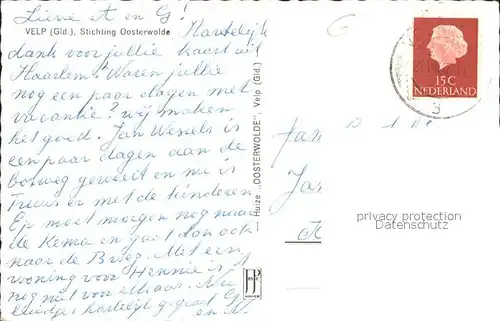 Lieve A en G!
VELP (Gld.), Stichting Oosterwolde
Hartelijk
dank voor jullie kaart uit
Haarlem! Waren jullie
nog een paar dagen met
vacantie? wij maken
het goed. Jan Wessels is
een paar dagen aan de
geweest en nu is
er met de kinderen
moet morgen nog naar
de Kema en gaat dan ook
naar de B.weg. Met een
woning voor Hennie is
nog niet voor elkaar. Nu
hartelijk gegroet
en
Huize „OOSTERWOLDE", Velp (Gld.)
15C
NEDERLAND
3
Jan
privacy protection
Datenschutz